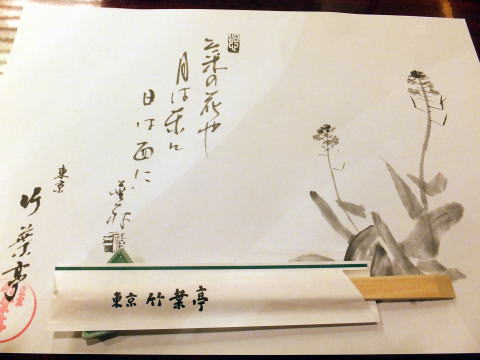 菜の花や
月は東に
日は西に
蕪村
東京
竹葉亭
東京 竹葉亭